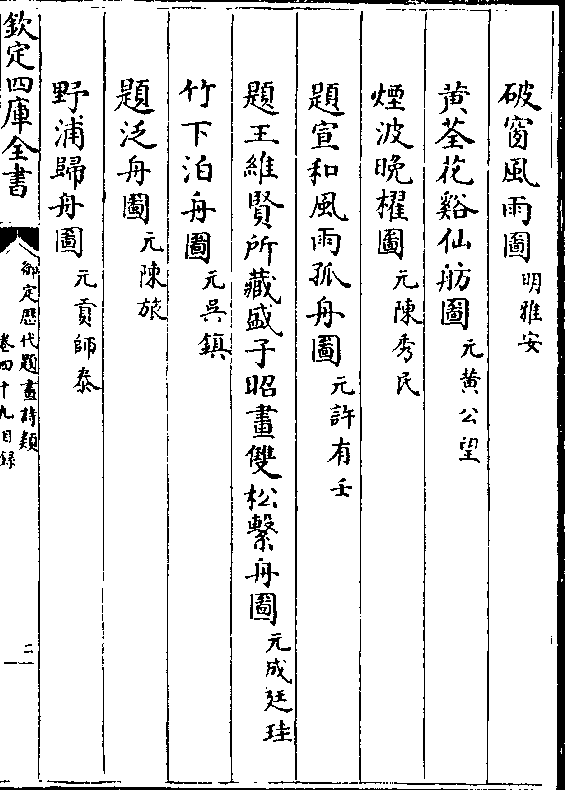 破窗風雨圖 明雅安
黄荃花谿仙舫圖 元黄公望
煙波晚櫂圖 元陳秀民
題宣和風雨孤舟圖 元許有壬
題王維賢所藏盛子昭畫雙松繫舟圖 元成廷珪
竹下泊舟圖 元吳鎮
題泛舟圖 元陳旅
野浦歸舟圖 元貢師泰
欽定四庫全書
御定歷代題畫詩類
卷四十九目録
二